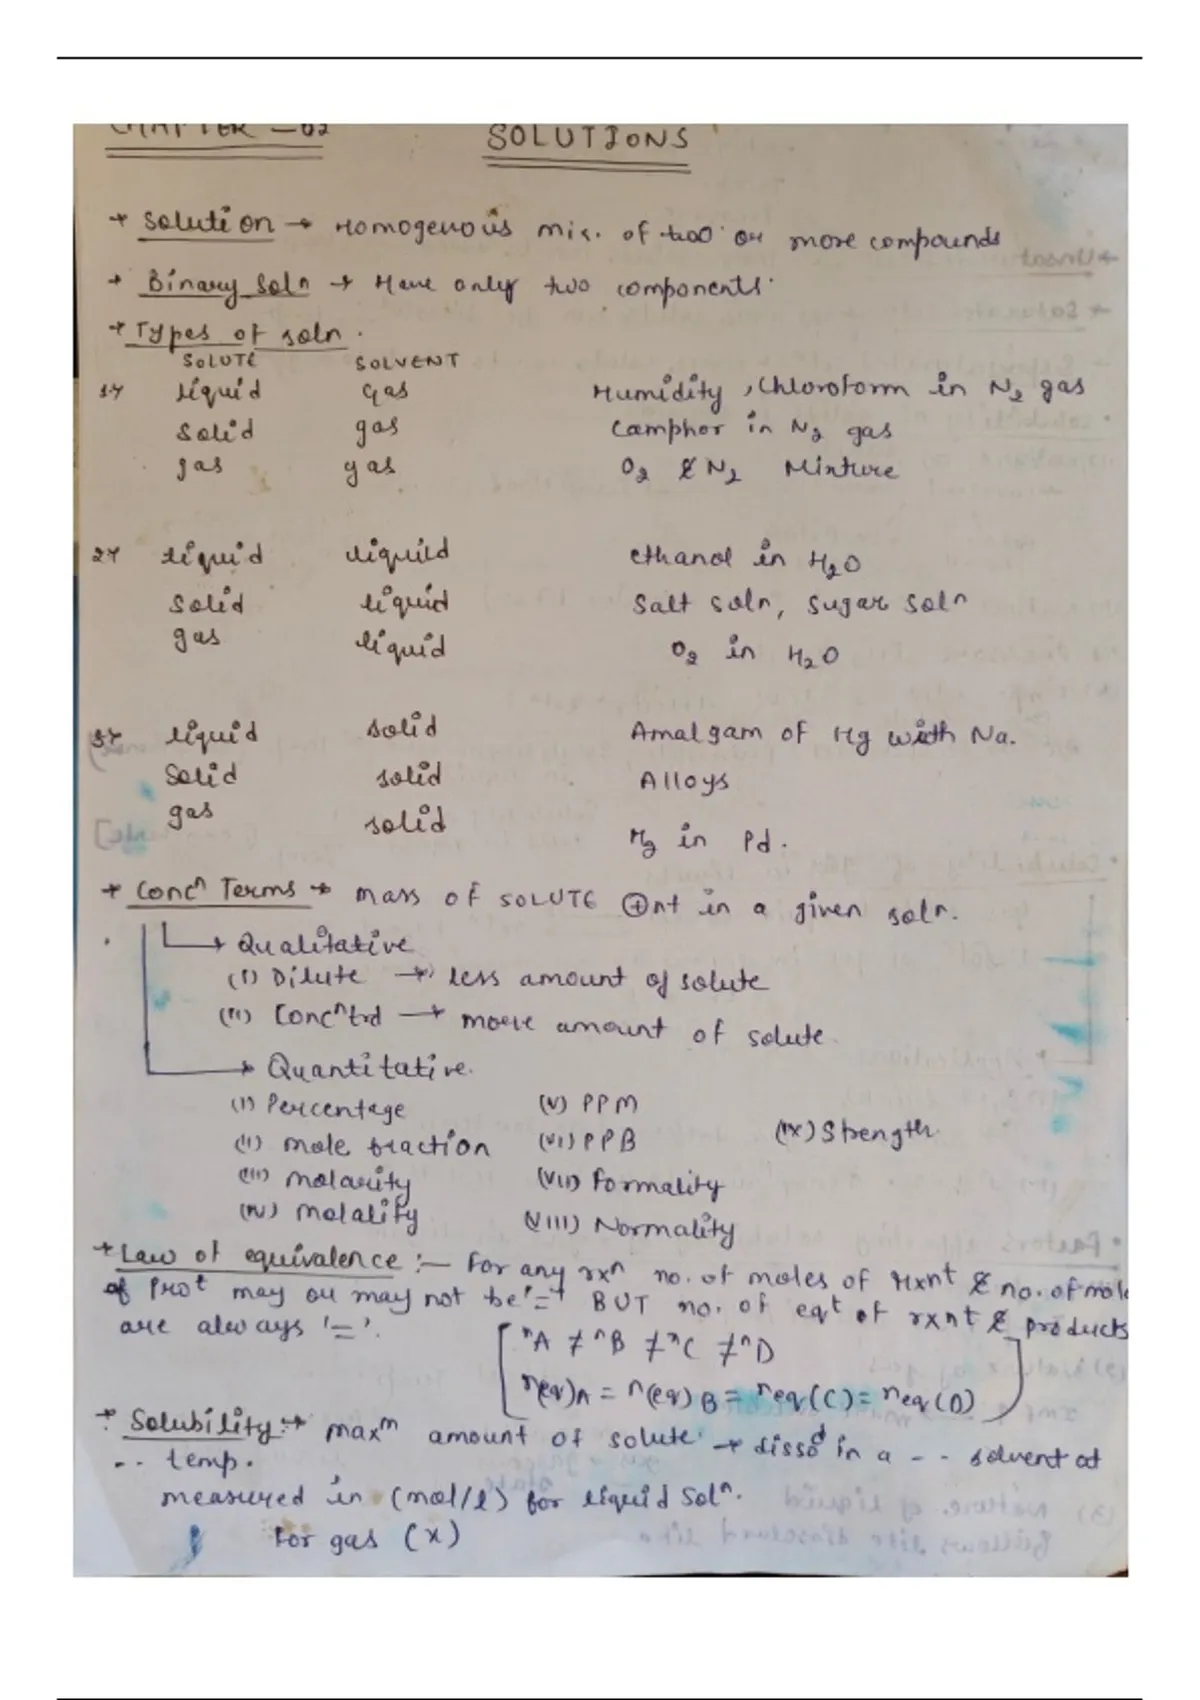 CHAPTER - 02 SOLUTIONS
→ Solution → Homogenous mix. of two or more compounds
→ Binary Solⁿ → Have only two components.
→ Types of soln.
SOLUTE SOLVENT
1→ liquid Gas Humidity, Chloroform in N₂ gas
Solid gas Camphor in N₂ gas
gas gas O₂ & N₂ Mixture
2→ liquid liquid ethanol in H₂O
Solid liquid Salt soln, Sugar Solⁿ
gas liquid O₂ in H₂O
3→ liquid solid Amalgam of Hg with Na.
Solid solid Alloys
gas solid H₂ in Pd.
→ Concⁿ Terms → mass of SOLUTE ⊕nt in a given soln.
→ Qualitative
(i) Dilute → less amount of solute
(ii) Concⁿtrd → more amount of solute
→ Quantitative.
(i) Percentage (v) PPM
(ii) mole fraction (vi) PPB (ix) Strength
(iii) molarity (vii) Formality
(iv) molality (viii) Normality
→ Law of equivalence :— For any rxⁿ no. of moles of rxnt & no. of mole
of Proᵗ may or may not be '=' BUT no. of eqᵗ of rxnt & products
are always '='.
[ⁿA ≠ ⁿB ≠ ⁿC ≠ ⁿD
n(eq)A = n(eq)B = neq(C) = neq(D)]
→ Solubility :→ maxᵐ amount of solute → dissoᵈ in a - - solvent at
-- temp.
measured in (mol/l) for liquid Solⁿ.
For gas (x)